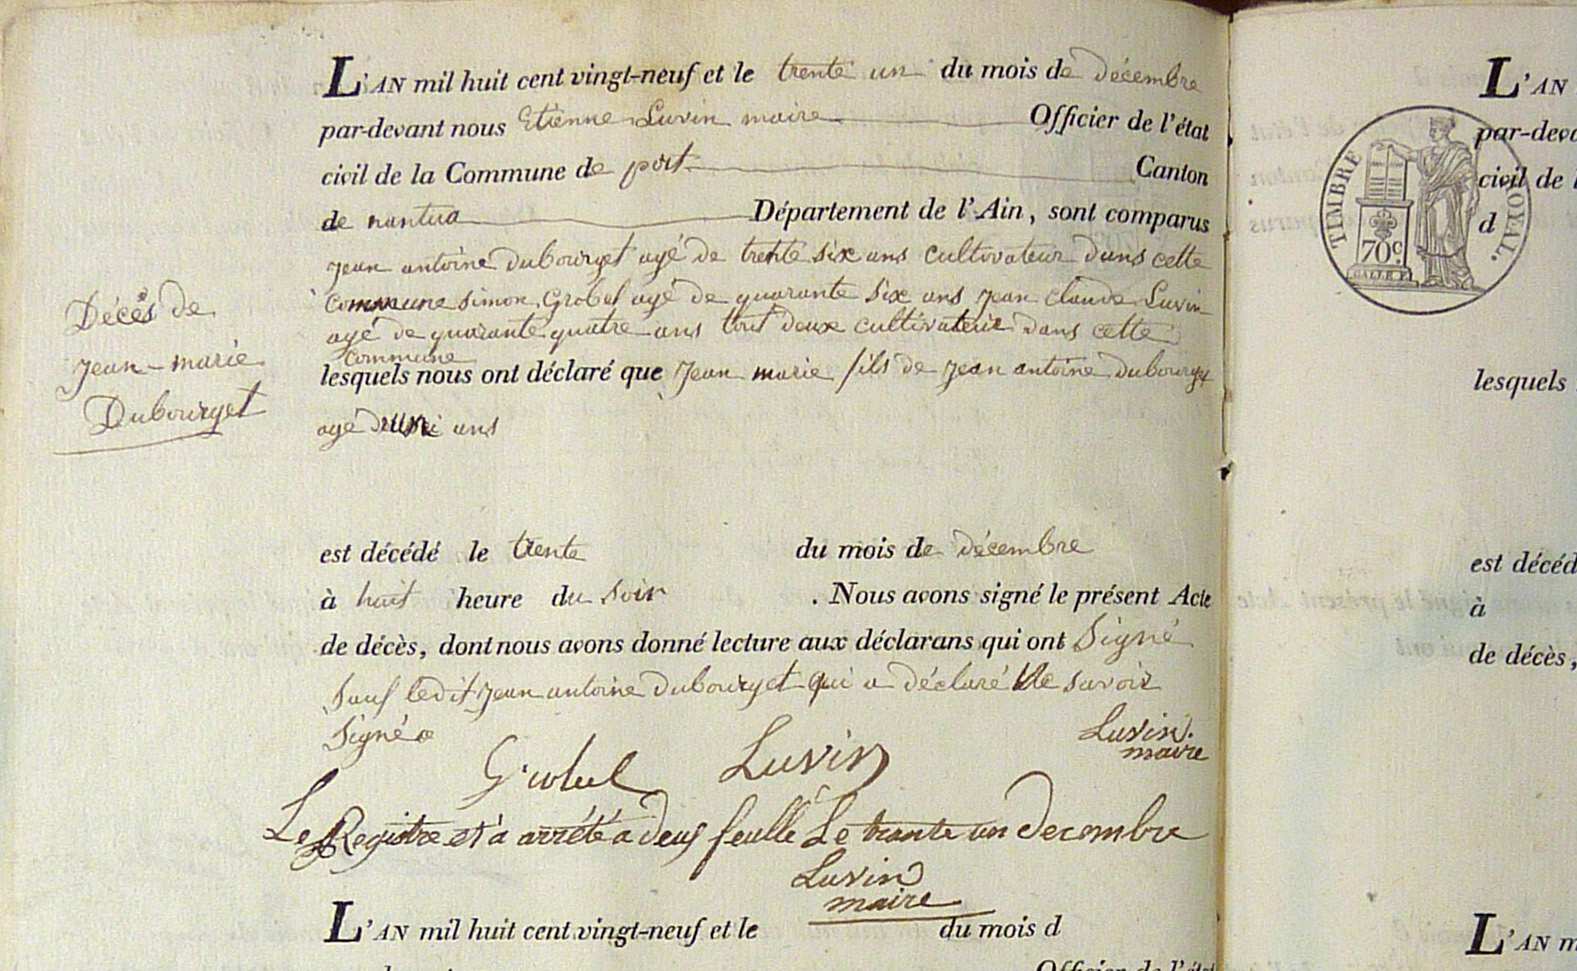 Décès de
Jean-marie
Dubourget
L'AN mil huit cent vingt-neuf et le trente un du mois de décembre
par-devant nous Etienne Luvin maire Officier de l'état
civil de la Commune de port Canton
de nantua Département de l'Ain, sont comparus
Jean antoine Dubourget agé de trente six ans cultivateur dans cette
commune simon Grobel agé de quarante six ans Jean claude Luvin
agé de quarante quatre ans tout deux cultivateur dans cette
commune
lesquels nous ont déclaré que Jean marie fils de Jean antoine Dubourget
agé ans
est décédé le trente du mois de décembre
à huit heure du soir . Nous avons signé le présent Acte
de décès, dont nous avons donné lecture aux déclarans qui ont Signé
sauf ledit Jean antoine Dubourget qui a déclaré Ne savoir
Signé
Luvin
maire
Luvin
Le Registre est a arrété a deux feulle Le trante un decembre
Luvin
maire
L'AN mil huit cent vingt-neuf et le du mois d
Officier de l'état
L'AN
TIMBRE ROYAL.
70c.
par-deva
civil de l
d
lesquels
est décéd
à
de décès,
L'AN m